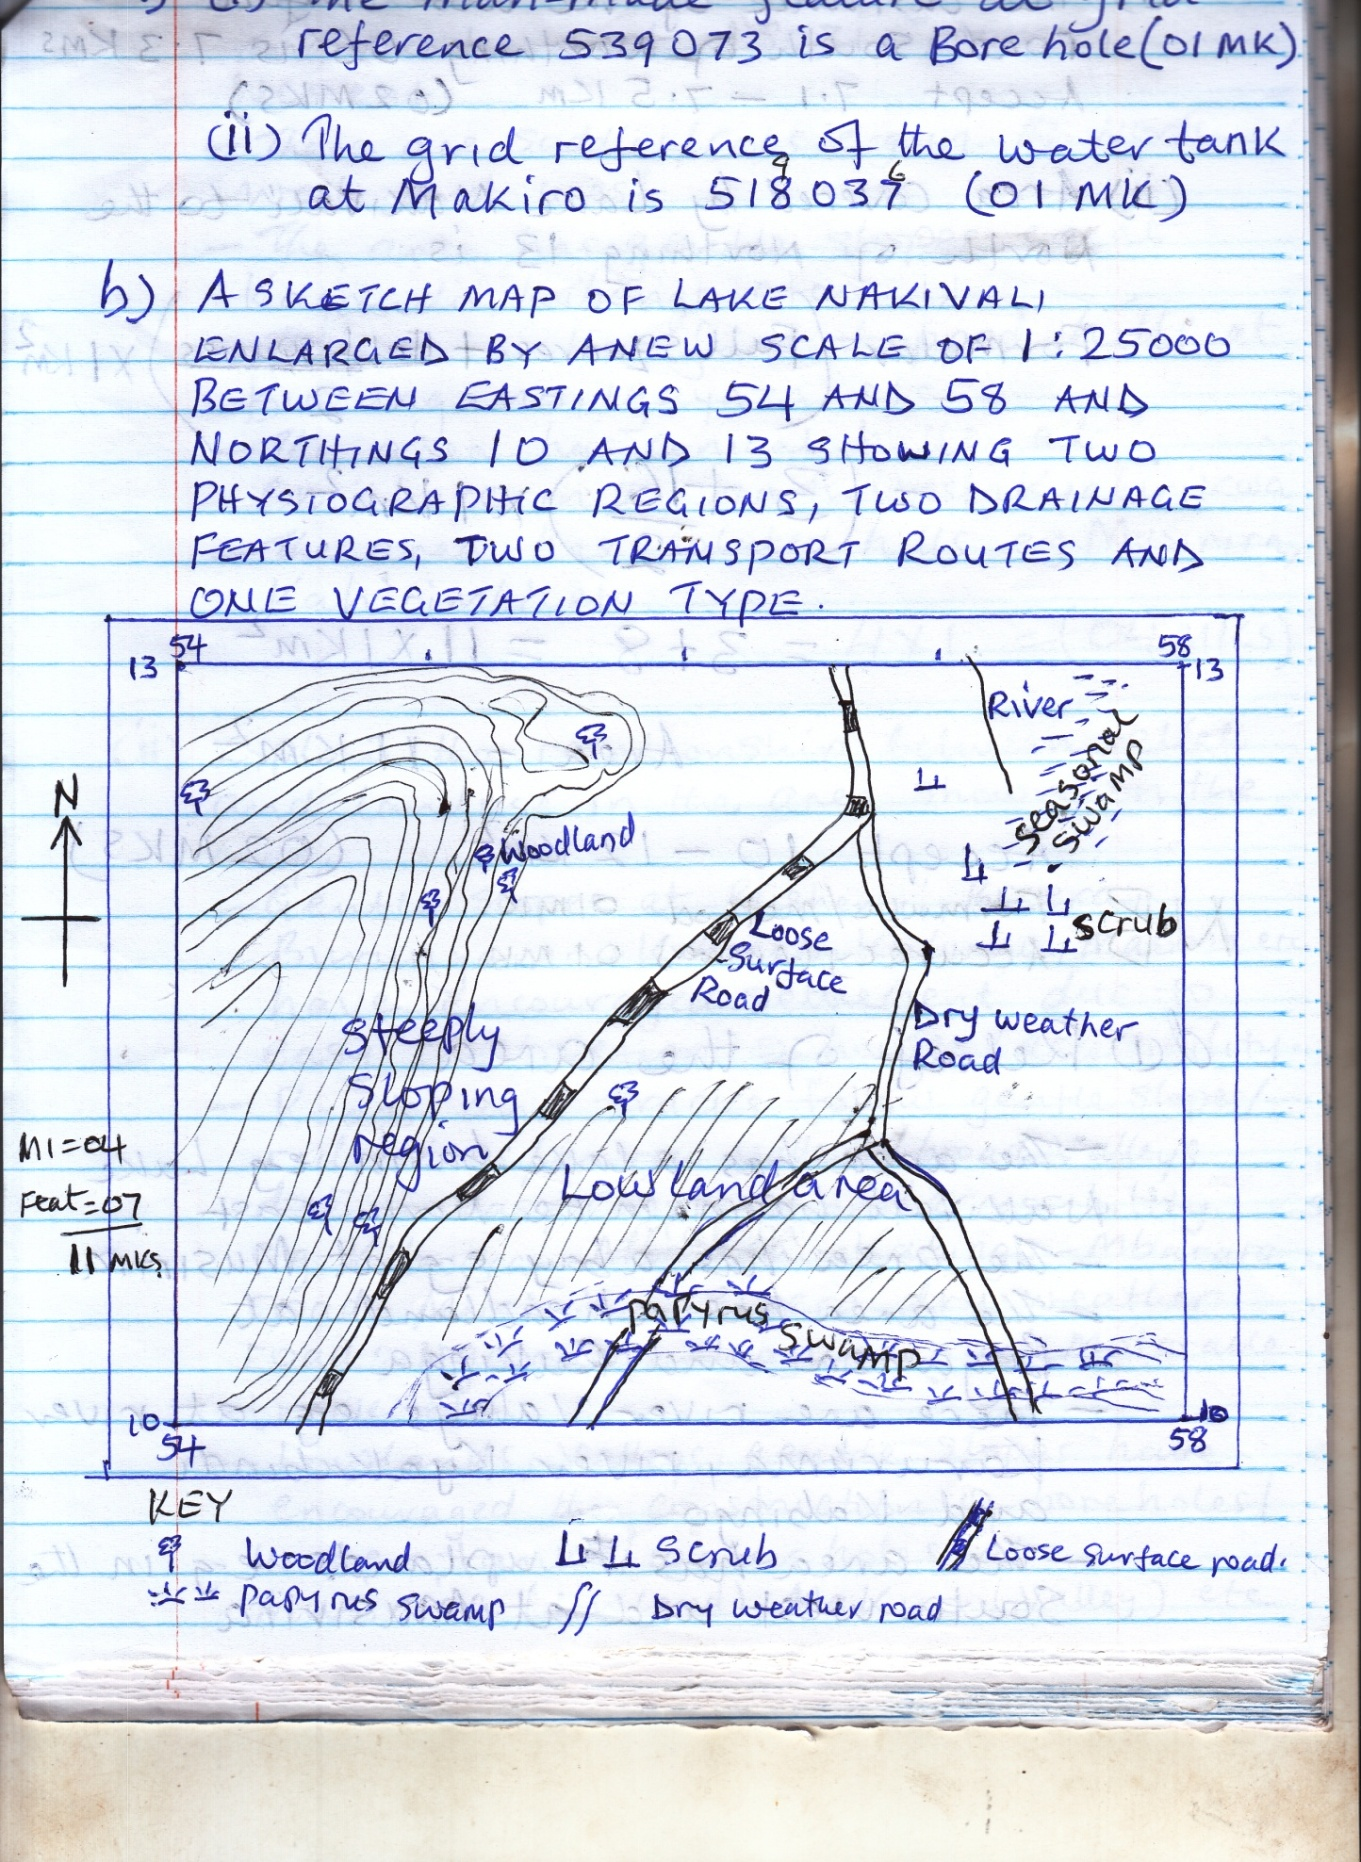 reference 539073 is a Bore hole (01 MK)
(ii) The grid reference of the water tank
9 6
at Makiro is 518037 (01 MK)
b) A SKETCH MAP OF LAKE NAKIVALI
ENLARGED BY A NEW SCALE OF 1:25000
BETWEEN EASTINGS 54 AND 58 AND
NORTHINGS 10 AND 13 SHOWING TWO
PHYSIOGRAPHIC REGIONS, TWO DRAINAGE
FEATURES, TWO TRANSPORT ROUTES AND
ONE VEGETATION TYPE.
54 58
13 13
River
Seasonal
Swamp
N
Woodland
Scrub
Loose
Surface
Road
Dry weather
Road
Steeply
Sloping
region
M1=04
Feat=07
11 MKS
Lowland area
Papyrus Swamp
10 10
54 58
KEY
Woodland
Scrub
Loose surface road.
Papyrus Swamp
Dry weather road